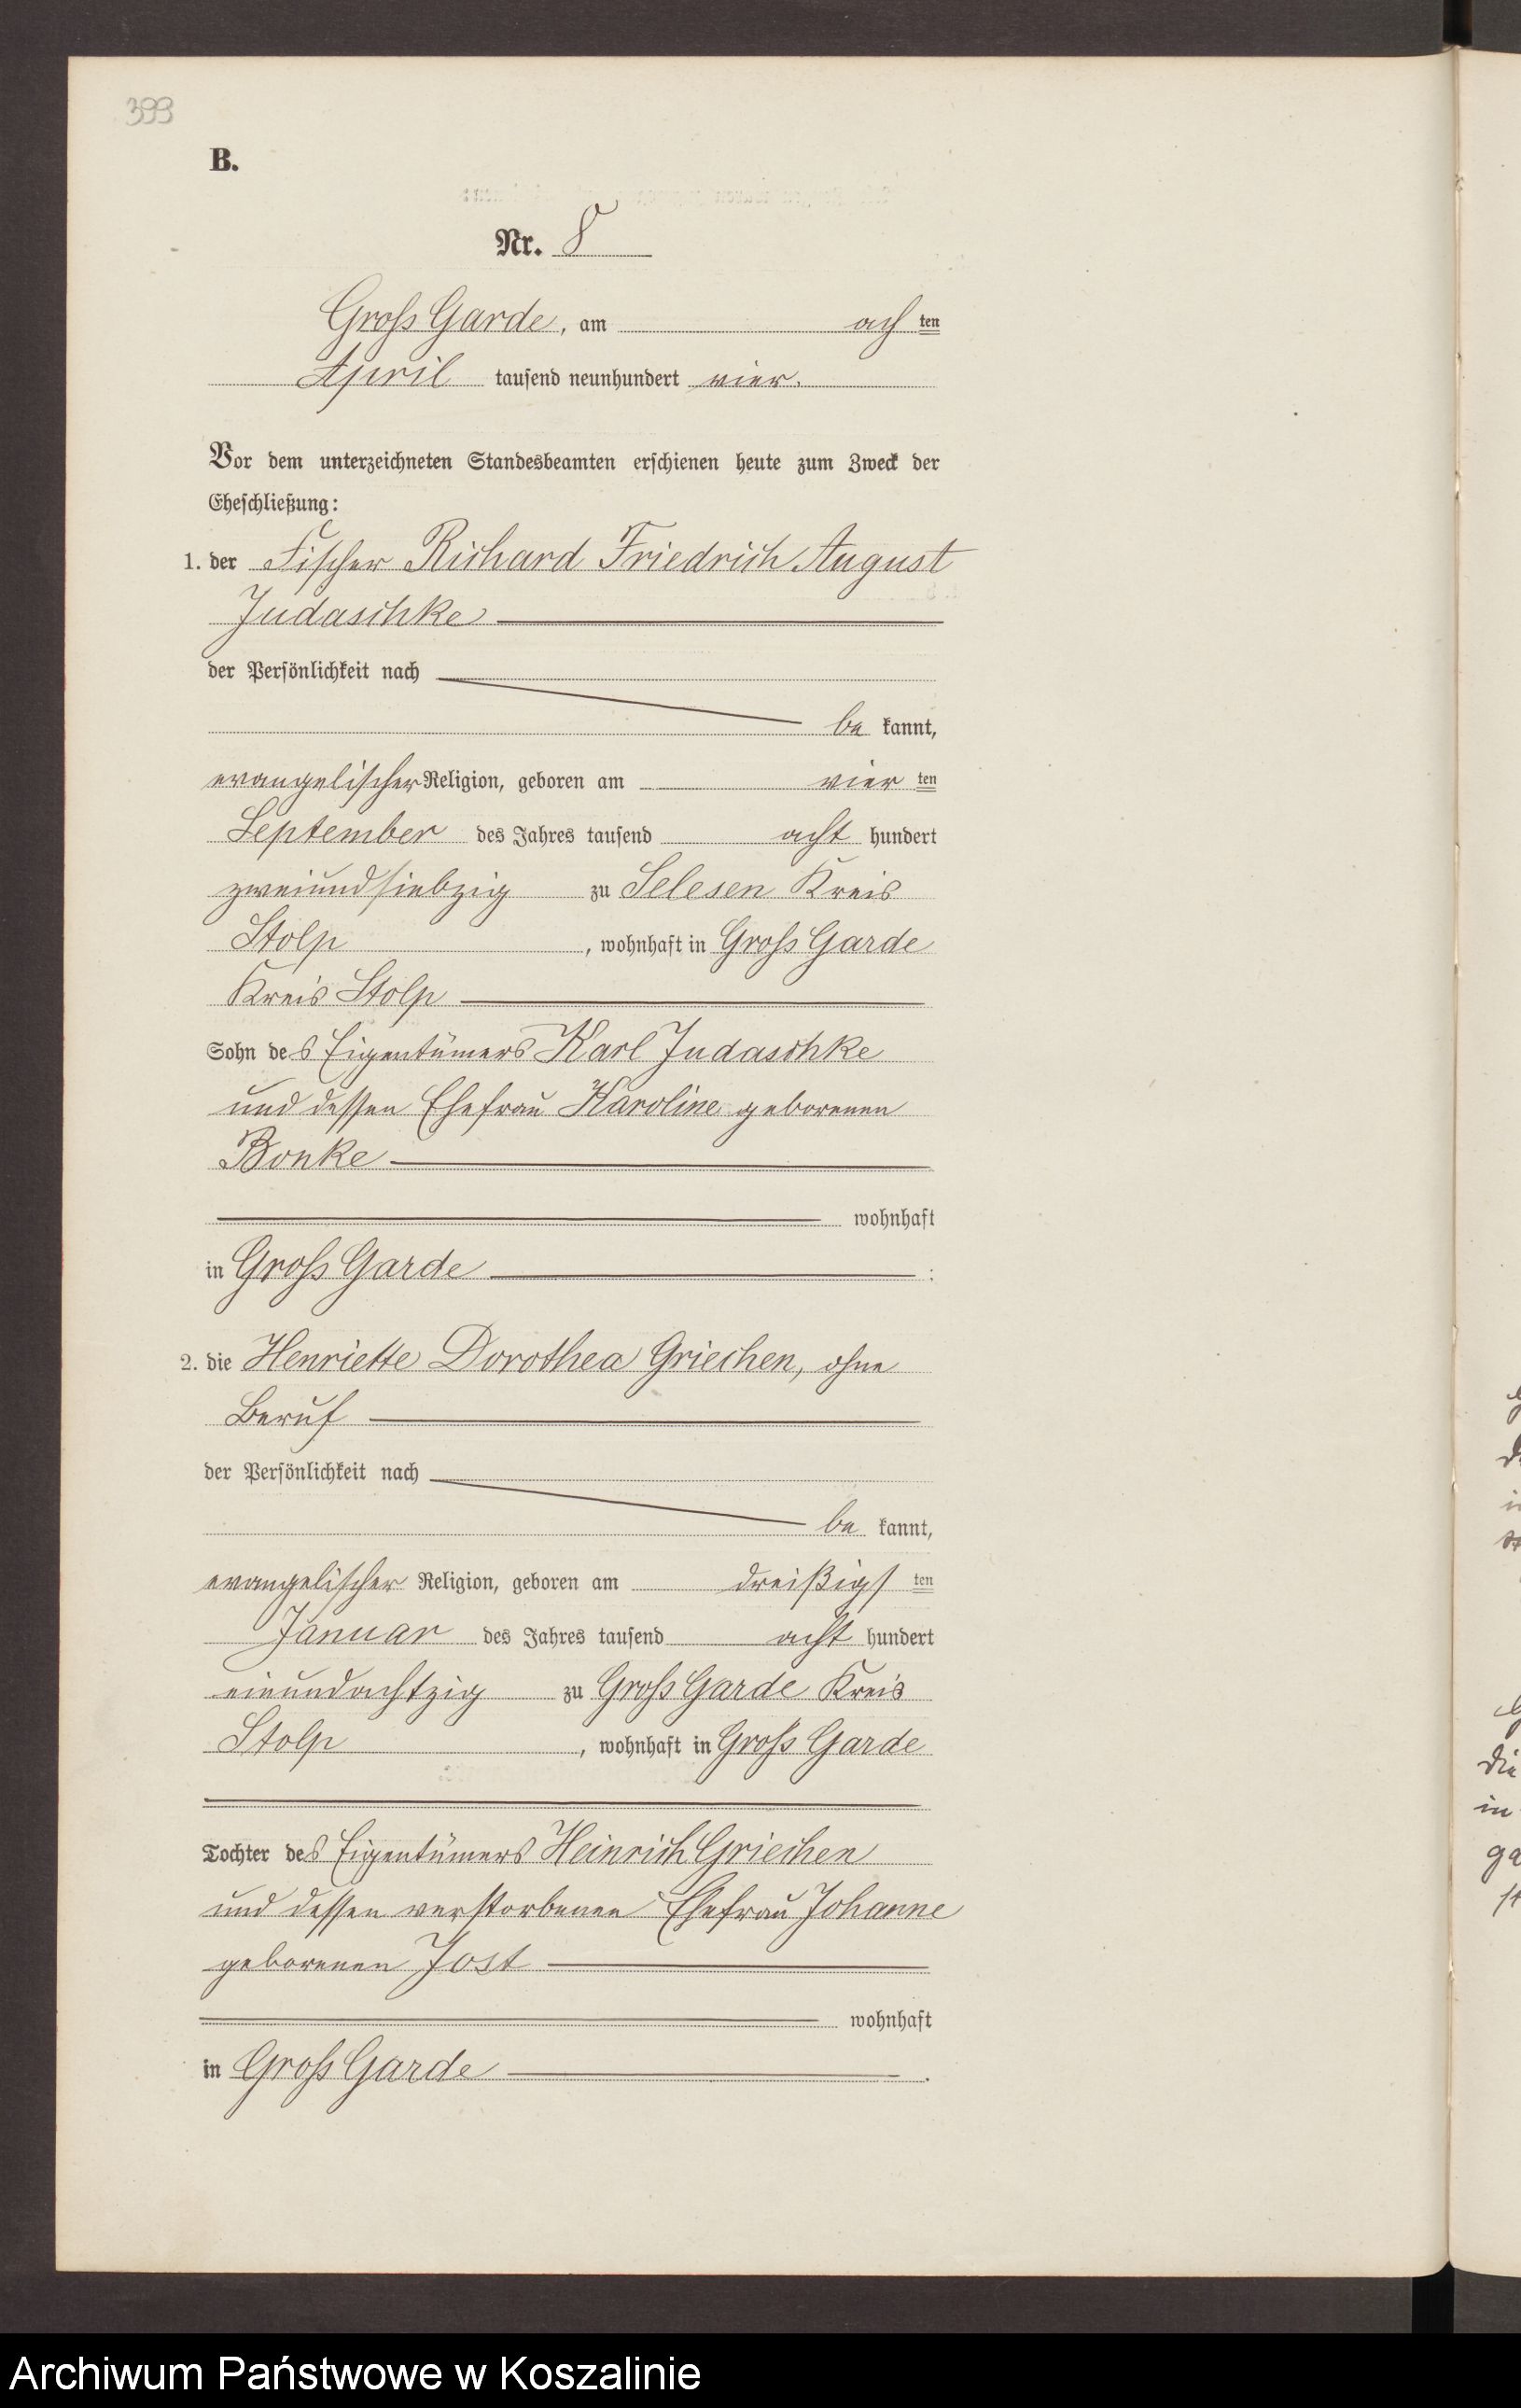 399
B.
Nr. 8
Gross Garde, am ach ten
April tausend neunhundert vier.
Vor dem unterzeichneten Standesbeamten erschienen heute zum Zweck der
Eheschließung:
1. der Fischer Richard Friedrich August
Judaschke
der Persönlichkeit nach
be kannt,
evangelischer Religion, geboren am vier ten
September des Jahres tausend acht hundert
zweiundsiebzig zu Selesen Kreis
Stolp, wohnhaft in Gross Garde
Kreis Stolp
Sohn des Eigentümers Karl Judaschke
und dessen Ehefrau Karoline geborenen
Bonke
wohnhaft
in Gross Garde :
2. die Henriette Dorothea Griechen, ohne
Beruf
der Persönlichkeit nach
be kannt,
evangelischer Religion, geboren am dreißigs ten
Januar des Jahres tausend acht hundert
einundachtzig zu Gross Garde Kreis
Stolp, wohnhaft in Gross Garde
Tochter des Eigentümers Heinrich Griechen
und dessen verstorbenen Ehefrau Johanne
geborenen Jost
wohnhaft
in Gross Garde .
Archiwum Państwowe w Koszalinie